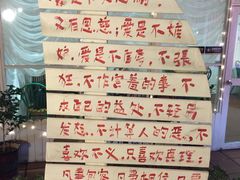 又有恩慈;愛是不嫉
妒,愛是不自誇,不張
狂,不作害羞的事,不
求自己的益處,不輕易
發怒,不計算人的惡,不
喜歡不義,只喜歡真理;
凡事包容,凡事相信,凡事